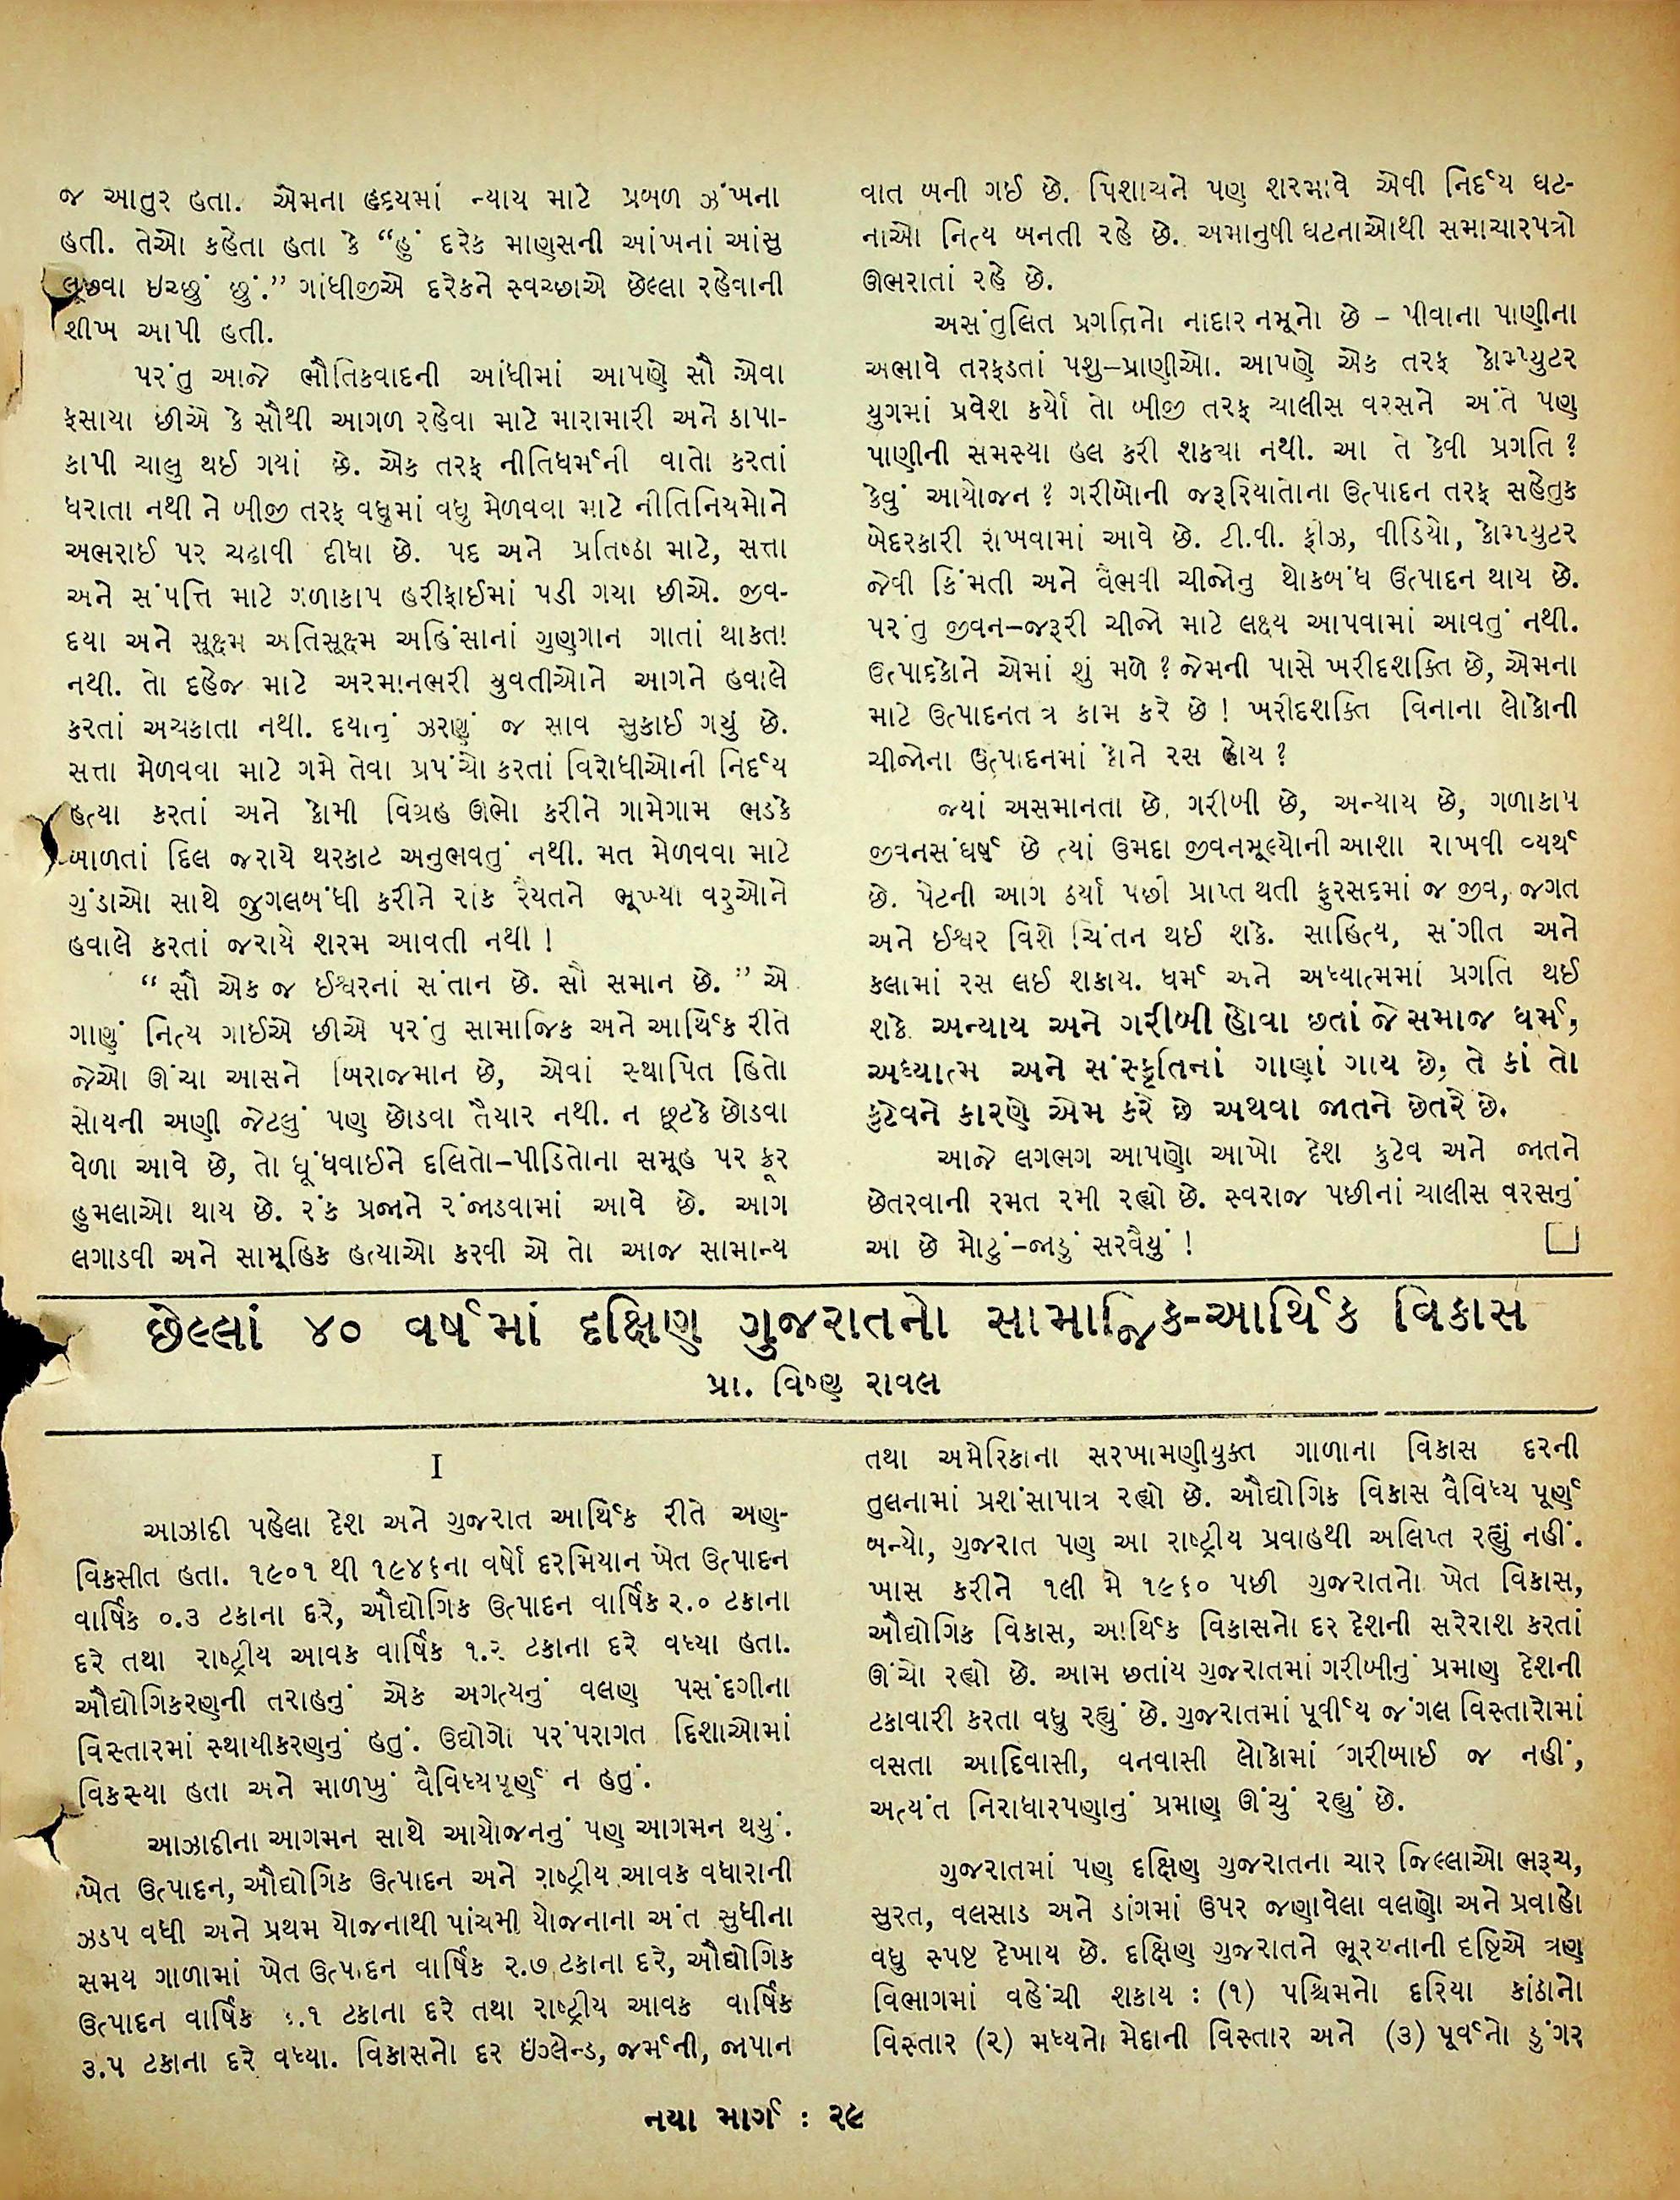 જ આતુર હતા. એમના હૃદયમાં ન્યાય માટે પ્રબળ ઝંખના
હતી. તેઓ કહેતા હતા કે “હું દરેક માણસની આંખનાં આંસુ
લૂછવા ઇચ્છું છું.” ગાંધીજીએ દરેકને સ્વચ્છાએ છેલ્લા રહેવાની
શીખ આપી હતી.
પરંતુ આજે ભૌતિકવાદની આંધીમાં આપણે સૌ એવા
ફસાયા છીએ કે સૌથી આગળ રહેવા માટે મારામારી અને કાપા-
કાપી ચાલુ થઈ ગયાં છે. એક તરફ નીતિધર્મની વાતો કરતાં
ધરાતા નથી ને બીજી તરફ વધુમાં વધુ મેળવવા માટે નીતિનિયમોને
અભરાઈ પર ચઢાવી દીધા છે. પદ અને પ્રતિષ્ઠા માટે, સત્તા
અને સંપત્તિ માટે ગળાકાપ હરીફાઈમાં પડી ગયા છીએ. જીવ-
દયા અને સૂક્ષ્મ અતિસૂક્ષ્મ અહિંસાનાં ગુણગાન ગાતાં થાકતા
નથી. તો દહેજ માટે અરમાનભરી યુવતીઓને આગને હવાલે
કરતાં અચકાતા નથી. દયાનું ઝરણું જ સાવ સુકાઈ ગયું છે.
સત્તા મેળવવા માટે ગમે તેવા પ્રપંચો કરતાં વિરોધીઓની નિર્દય
હત્યા કરતાં અને કોમી વિગ્રહ ઊભો કરીને ગામેગામ ભડકે
બાળતાં દિલ જરાયે થરકાટ અનુભવતું નથી. મત મેળવવા માટે
ગુંડાઓ સાથે જુગલબંધી કરીને રાંક રૈયતને ભૂખ્યા વરુઓને
હવાલે કરતાં જરાયે શરમ આવતી નથી !
“ સૌ એક જ ઈશ્વરનાં સંતાન છે. સૌ સમાન છે. ” એ
ગાણું નિત્ય ગાઈએ છીએ પરંતુ સામાજિક અને આર્થિક રીતે
જેઓ ઊંચા આસને બિરાજમાન છે, એવાં સ્થાપિત હિતો
સોયની અણી જેટલું પણ છોડવા તૈયાર નથી. ન છૂટકે છોડવા
વેળા આવે છે, તો ધૂંધવાઈને દલિતો–પીડિતોના સમૂહ પર ક્રૂર
હુમલાઓ થાય છે. રંક પ્રજાને રંજાડવામાં આવે છે. આગ
લગાડવી અને સામૂહિક હત્યાઓ કરવી એ તો આજ સામાન્ય
વાત બની ગઈ છે. પિશાચને પણ શરમાવે એવી નિર્દય ઘટ-
નાઓ નિત્ય બનતી રહે છે. અમાનુષી ઘટનાઓથી સમાચારપત્રો
ઊભરાતાં રહે છે.
અસંતુલિત પ્રગતિનો નાદાર નમૂનો છે – પીવાના પાણીના
અભાવે તરફડતાં પશુ–પ્રાણીઓ. આપણે એક તરફ કોમ્પ્યુટર
યુગમાં પ્રવેશ કર્યો તો બીજી તરફ ચાલીસ વરસને અંતે પણ
પાણીની સમસ્યા હલ કરી શકયા નથી. આ તે કેવી પ્રગતિ ?
કેવું આયોજન ? ગરીબોની જરૂરિયાતોના ઉત્પાદન તરફ સહેતુક
બેદરકારી રાખવામાં આવે છે. ટી.વી. ફ્રીઝ, વીડિયો, કોમ્પ્યુટર
જેવી કિંમતી અને વૈભવી ચીજોનુ થોકબંધ ઉત્પાદન થાય છે.
પરંતુ જીવન–જરૂરી ચીજો માટે લક્ષ્ય આપવામાં આવતું નથી.
ઉત્પાદકોને એમાં શું મળે ? જેમની પાસે ખરીદશક્તિ છે, એમના
માટે ઉત્પાદનતંત્ર કામ કરે છે ! ખરીદશક્તિ વિનાના લોકોની
ચીજોના ઉત્પાદનમાં કોને રસ હોય ?
જ્યાં અસમાનતા છે, ગરીબી છે, અન્યાય છે, ગળાકાપ
જીવનસંઘર્ષ છે ત્યાં ઉમદા જીવનમૂલ્યોની આશા રાખવી વ્યર્થ
છે. પેટની આગ ઠર્યા પછી પ્રાપ્ત થતી ફુરસદમાં જ જીવ, જગત
અને ઈશ્વર વિશે ચિંતન થઈ શકે. સાહિત્ય, સંગીત અને
કલામાં રસ લઈ શકાય. ધર્મ અને અધ્યાત્મમાં પ્રગતિ થઈ
શકે. અન્યાય અને ગરીબી હોવા છતાં જે સમાજ ધર્મ,
અધ્યાત્મ અને સંસ્કૃતિનાં ગાણાં ગાય છે, તે કાં તો
કુટેવને કારણે એમ કરે છે અથવા જાતને છેતરે છે.
આજે લગભગ આપણો આખો દેશ કુટેવ અને જાતને
છેતરવાની રમત રમી રહ્યો છે. સ્વરાજ પછીનાં ચાલીસ વરસનું
આ છે મોટું–જાડું સરવૈયું !
છેલ્લાં ૪૦ વર્ષમાં દક્ષિણ ગુજરાતનો સામાજિક-આર્થિક વિકાસ
પ્રા. વિષ્ણુ રાવલ
I
આઝાદી પહેલા દેશ અને ગુજરાત આર્થિક રીતે અણ-
વિકસીત હતા. ૧૯૦૧ થી ૧૯૪૬ના વર્ષો દરમિયાન ખેત ઉત્પાદન
વાર્ષિક ૦.૩ ટકાના દરે, ઔદ્યોગિક ઉત્પાદન વાર્ષિક ૨.૦ ટકાના
દરે તથા રાષ્ટ્રીય આવક વાર્ષિક ૧.૨ ટકાના દરે વધ્યા હતા.
ઔદ્યોગિકરણની તરાહનું એક અગત્યનું વલણ પસંદગીના
વિસ્તારમાં સ્થાયીકરણનું હતું. ઉદ્યોગો પરંપરાગત દિશાઓમાં
વિકસ્યા હતા અને માળખું વૈવિધ્યપૂર્ણ ન હતું.
આઝાદીના આગમન સાથે આયોજનનું પણ આગમન થયું.
ખેત ઉત્પાદન, ઔદ્યોગિક ઉત્પાદન અને રાષ્ટ્રીય આવક વધારાની
ઝડપ વધી અને પ્રથમ યોજનાથી પાંચમી યોજનાના અંત સુધીના
સમય ગાળામાં ખેત ઉત્પાદન વાર્ષિક ૨.૭ ટકાના દરે, ઔદ્યોગિક
ઉત્પાદન વાર્ષિક .૧ ટકાના દરે તથા રાષ્ટ્રીય આવક વાર્ષિક
૩.૫ ટકાના દરે વધ્યા. વિકાસનો દર ઇંગ્લેન્ડ, જર્મની, જાપાન
તથા અમેરિકાના સરખામણીયુક્ત ગાળાના વિકાસ દરની
તુલનામાં પ્રશંસાપાત્ર રહ્યો છે. ઔદ્યોગિક વિકાસ વૈવિધ્ય પૂર્ણ
બન્યો, ગુજરાત પણ આ રાષ્ટ્રીય પ્રવાહથી અલિપ્ત રહ્યું નહીં.
ખાસ કરીને ૧લી મે ૧૯૬૦ પછી ગુજરાતનો ખેત વિકાસ,
ઔદ્યોગિક વિકાસ, આર્થિક વિકાસનો દર દેશની સરેરાશ કરતાં
ઊંચો રહ્યો છે. આમ છતાંય ગુજરાતમાં ગરીબીનું પ્રમાણ દેશની
ટકાવારી કરતા વધુ રહ્યું છે. ગુજરાતમાં પૂર્વીય જંગલ વિસ્તારોમાં
વસતા આદિવાસી, વનવાસી લોકોમાં ગરીબાઈ જ નહીં,
અત્યંત નિરાધારપણાનું પ્રમાણ ઊંચું રહ્યું છે.
ગુજરાતમાં પણ દક્ષિણ ગુજરાતના ચાર જિલ્લાઓ ભરૂચ,
સુરત, વલસાડ અને ડાંગમાં ઉપર જણાવેલા વલણો અને પ્રવાહો
વધુ સ્પષ્ટ દેખાય છે. દક્ષિણ ગુજરાતને ભૂરચનાની દષ્ટિએ ત્રણ
વિભાગમાં વહેંચી શકાય : (૧) પશ્ચિમનો દરિયા કાંઠાનો
વિસ્તાર (૨) મધ્યનો મેદાની વિસ્તાર અને (૩) પૂર્વનો ડુંગર
નયા માર્ગ : ૨૯